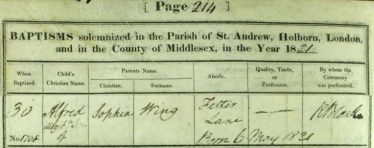 [ Page 214 ]
BAPTISMS solemnized in the Parish of St. Andrew, Holborn, London,
and in the County of Middlesex, in the Year 1821
When Baptized.
Child's Christian Name.
Parents Name.
Christian. Surname.
Abode.
Quality, Trade, or Profession.
By whom the Ceremony was performed.
30 Alfred Sophia Wing Fetter Lane —
of
No. 1708 Born 6 May 1821